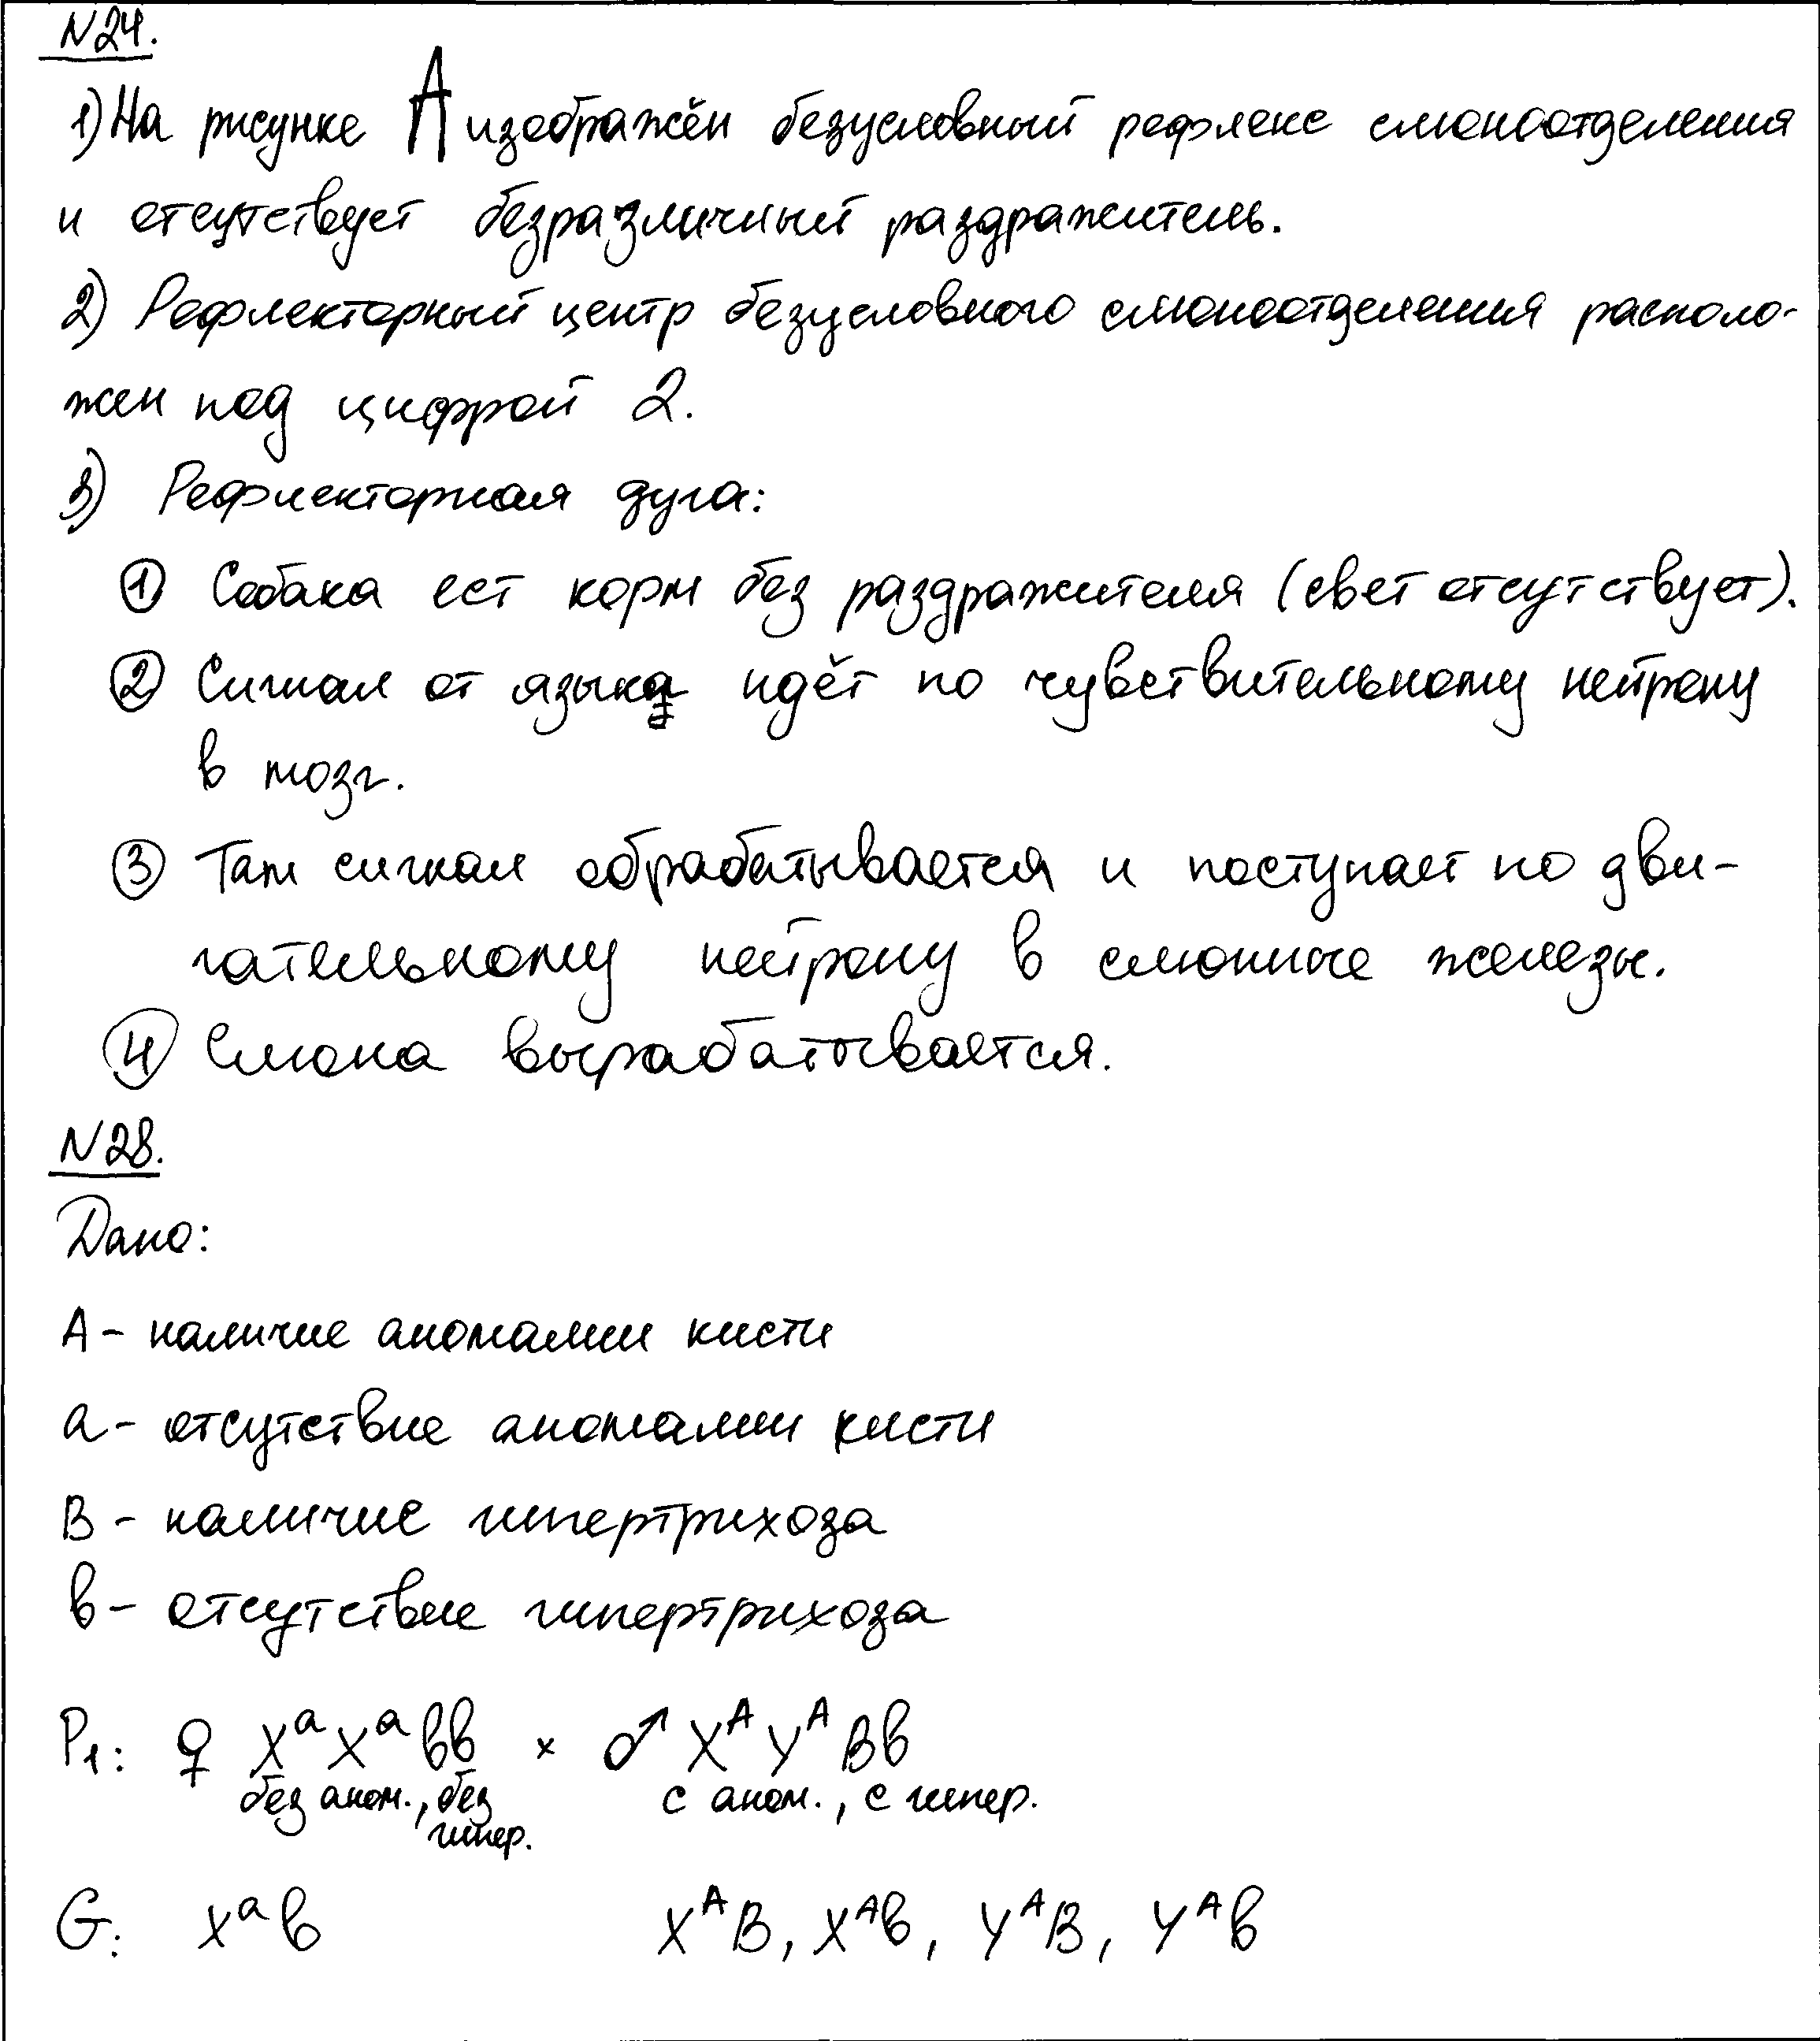 N24.
1) На рисунке A изображён безусловный рефлекс слюноотделения
и отсутствует безразличный раздражитель.
2) Рефлекторный центр безусловного слюноотделения располо-
жен под цифрой 2.
3) Рефлекторная дуга:
① Собака ест корм без раздражителя (свет отсутствует).
② Сигнал от языка идёт по чувствительному нейрону
в мозг.
③ Там сигнал обрабатывается и поступает по дви-
гательному нейрону в слюнные железы.
④ Слюна вырабатывается.
N28.
Дано:
A - наличие аномалии кисти
a - отсутствие аномалии кисти
B - наличие гипертрихоза
в - отсутствие гипертрихоза
P₁: ♀ XᵃXᵃвв × ♂ XᴬYᴬBв
без аном., без гипер. с аном., с гипер.
G: Xᵃв XᴬB, Xᴬв, YᴬB, Yᴬв